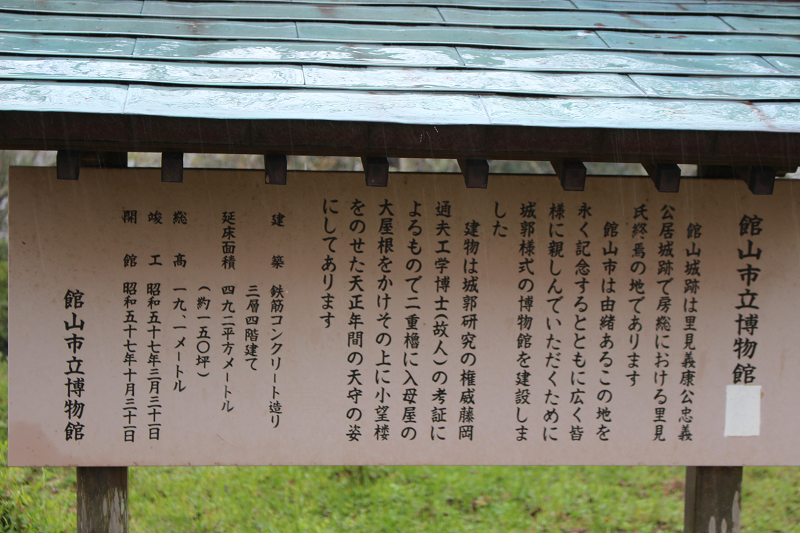 館山市立博物館
館山城跡は里見義康公忠義
公居城跡で房総における里見
氏終焉の地であります
館山市は由緒あるこの地を
永く記念するとともに広く皆
様に親しんでいただくために
城郭様式の博物館を建設しま
した
建物は城郭研究の権威藤岡
通夫工学博士(故人)の考証に
よるもので二重櫓に入母屋の
大屋根をかけその上に小望楼
をのせた天正年間の天守の姿
にしてあります
建築 鉄筋コンクリート造り
三層四階建て
延床面積 四九二平方メートル
(約一五〇坪)
総高 一九、一メートル
竣工 昭和五十七年三月三十一日
開館 昭和五十七年十月三十一日
館山市立博物館